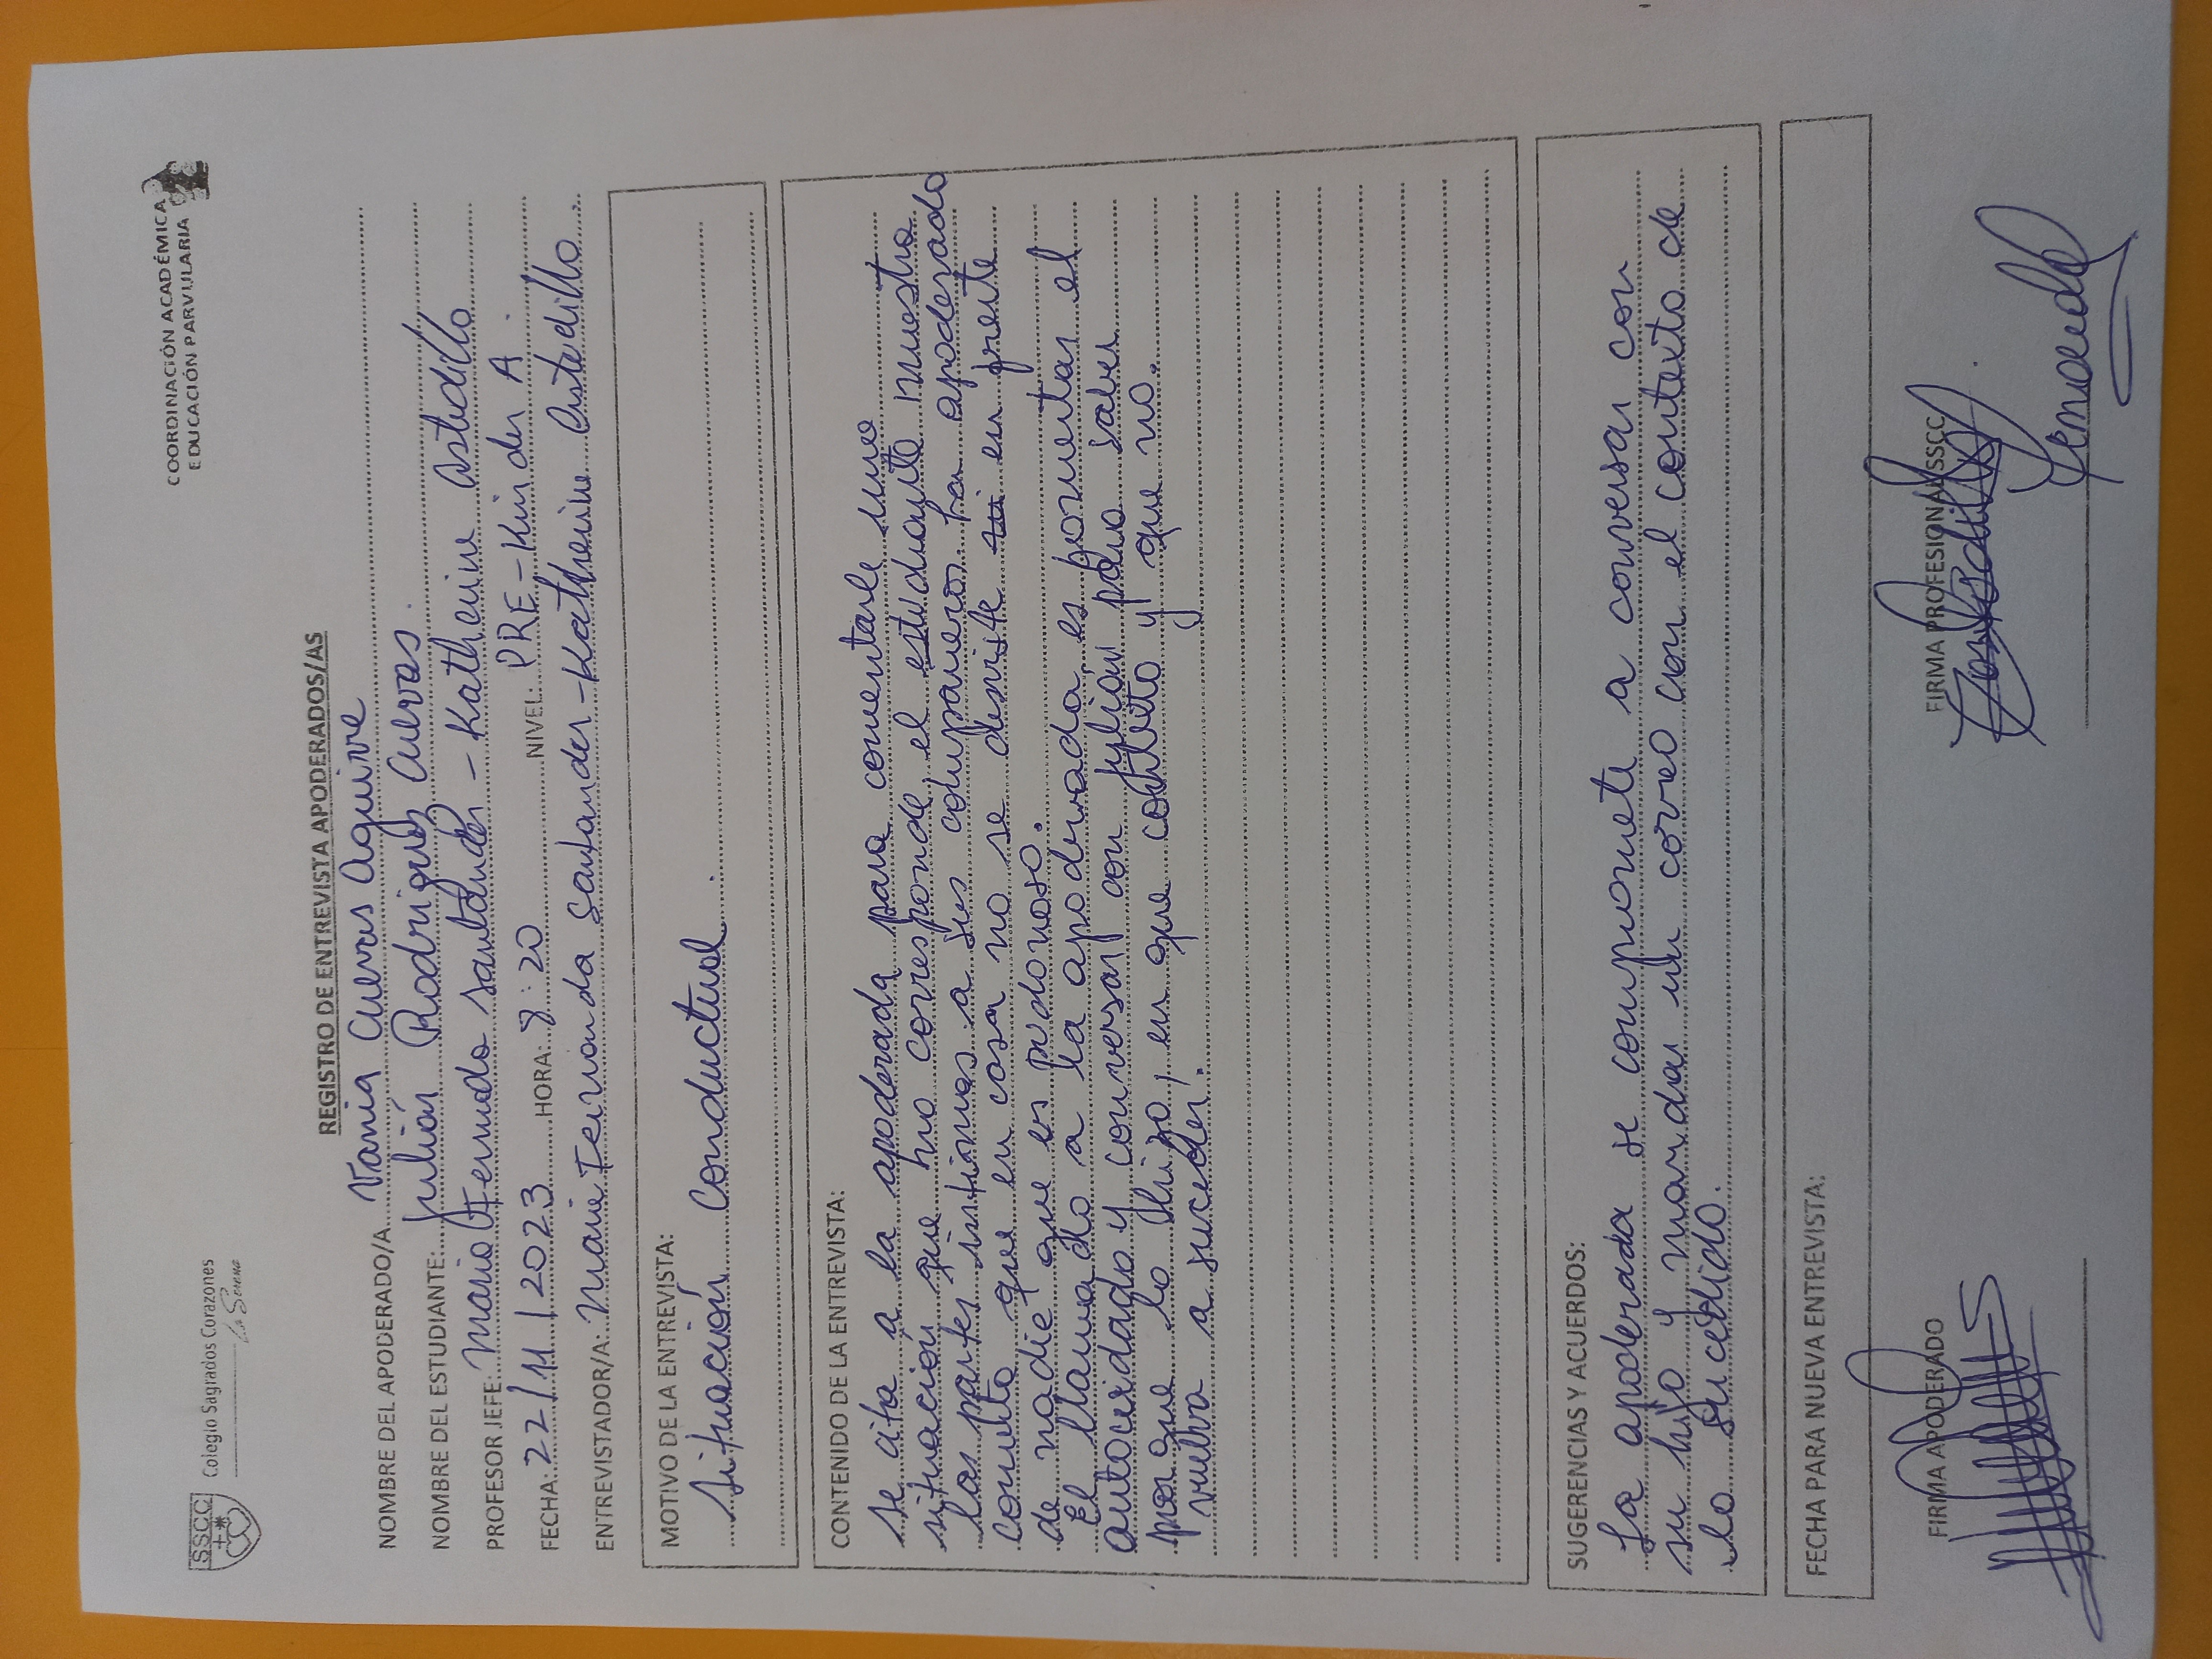 SSCC
Colegio Sagrados Corazones
La Serena
COORDINACIÓN ACADÉMICA
EDUCACIÓN PARVULARIA
REGISTRO DE ENTREVISTA APODERADOS/AS
NOMBRE DEL APODERADO/A Vania Cuevas Aguirre
NOMBRE DEL ESTUDIANTE: Julián Rodriguez Cuevas.
PROFESOR JEFE: Maria Fernanda Santander - Katherine Astudillo
FECHA: 22/11/2023 HORA: 8:20 NIVEL: PRE-Kinder A.
ENTREVISTADOR/A: Maria Fernanda Santander - Katherine Astudillo.
MOTIVO DE LA ENTREVISTA:
Situación Conductual.
CONTENIDO DE LA ENTREVISTA:
Se cita a la apoderada para comentarle una
situación que no corresponde, el estudiante muestra
las partes intimas a sus compañeros. La apoderada
comenta que en casa no se desviste en frente
de nadie que es pudoroso.
El llamado a la apoderada es fomentar el
autocuidado y conversar con Julián para saber
porque lo hizo, en que contexto y que no.
vuelva a suceder.
SUGERENCIAS Y ACUERDOS:
La apoderada se compromete a conversar con
su hijo y mandar un correo con el contexto de
lo sucedido.
FECHA PARA NUEVA ENTREVISTA:
FIRMA APODERADO
FIRMA PROFESIONAL SSCC